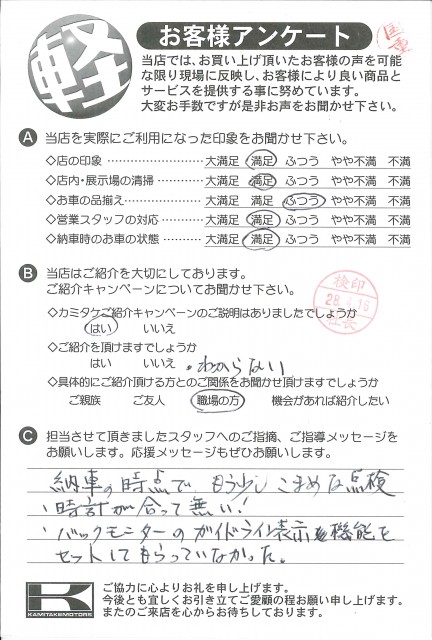 軽
お客様アンケート
当店では、お買い上げ頂いたお客様の声を可能
な限り現場に反映し、お客様により良い商品と
サービスを提供する事に努めています。
大変お手数ですが是非お声をお聞かせ下さい。
A 当店を実際にご利用になった印象をお聞かせ下さい。
◇店の印象 ………… 大満足 満足 ふつう やや不満 不満
◇店内・展示場の清掃 ………… 大満足 満足 ふつう やや不満 不満
◇お車の品揃え ………… 大満足 満足 ふつう やや不満 不満
◇営業スタッフの対応 ………… 大満足 満足 ふつう やや不満 不満
◇納車時のお車の状態 ………… 大満足 満足 ふつう やや不満 不満
B 当店はご紹介を大切にしております。
ご紹介キャンペーンについてお聞かせ下さい。
検印
28.4.16
◇カミタケご紹介キャンペーンのご説明はありましたでしょうか
はい いいえ
◇ご紹介を頂けますでしょうか
はい いいえ ・わからない
◇具体的にご紹介頂ける方とのご関係をお聞かせ頂けますでしょうか
ご親族 ご友人 職場の方 機会があれば紹介したい
C 担当させて頂きましたスタッフへのご指摘、ご指導メッセージを
お願いします。応援メッセージもぜひお願いします。
納車の時点で、もう少しこまめな点検
・時計が合って無い!
・バックモニターのガイドライン表示機能を
セットしてもらっていなかった。
K
KAMITAKEMOTORS
ご協力に心よりお礼を申し上げます。
今後とも宜しくお引き立てご愛顧の程お願い申し上げます。
またのご来店を心からお待ちしております。